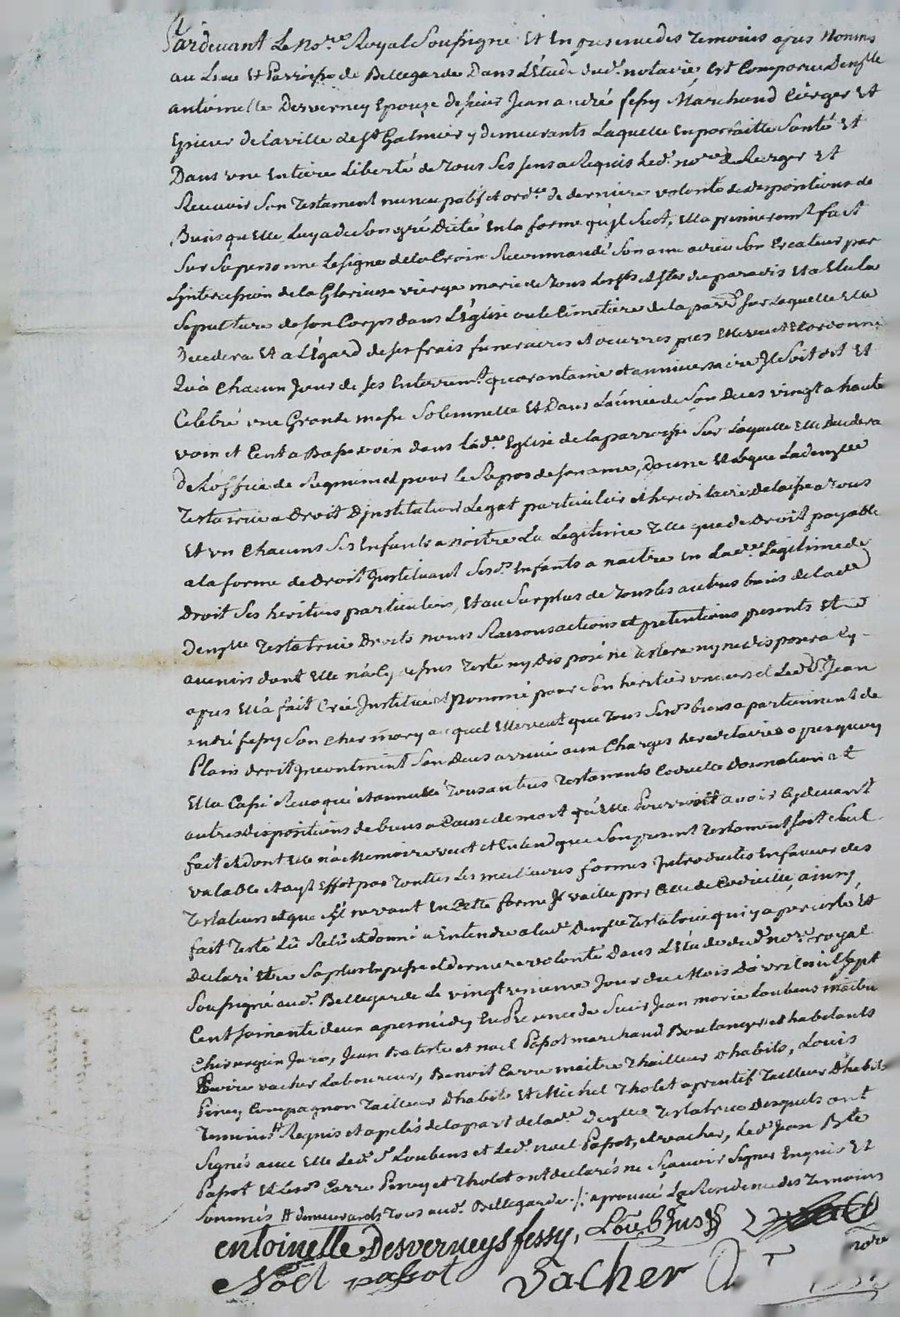 Pardevant Le No.re Royal Soussigné Et En presence des Temoins apres Nommés
au Lieu Et Parroisse de Bellegarde Dans L'Etude dud. notaire Est Comparue Den.lle
antoinelle Desverney Epouze de sieur Jean andré fessy Marchand Cierger Et
Epicier de la ville de S.t Galmier y demeurants Laquelle En parfaitte Santé Et
Dans une Entiere Liberté de Tous Ses sens a Requis Led. no.re de Rediger Et
Recevoir Son Testament nuncupatif et ord.re de derniere volonté de dispositions de
Biens qu'Elle Luy a de Son gré Dicté En la forme qu'il Suit, Ella premieremt fait
Sur Sa personne Le signe de la Croix Recommandé Son ame a dieu Son Createur par
L'intercession de la Glorieuse vierge marie de Tous Les S.ts et S.tes du paradis Et a Elu la
Sepulture de Son Corps dans L'Eglise ou le Cimetiere de la parr.se Sur Laquelle Elle
Decedera Et a L'Egard de Ses frais funeraires et oeuvres pies Elle veut Et ordonne
Qu'a Chacun Jour de Ses Enterremt. quarantaine et anniversaire Il Soit dit Et
Celebré une Grande messe Solemnelle Et Dans L'année de Son Deces vingt a haute
voix et Cent a Basse voix dans lad. Eglise de la parroisse Sur Laquelle Elle Decedera
De L'office de Requiem et pour le Repos de Son ame, donne Et Legue Lad. den.lle
Testatrice a Droit D'institution Legat particulier et hereditaire delaisse a Tous
Et un Chacuns Ses Enfants a naitre La Legitime Telle que de Droit payable
a la forme de Droit Instituant Sesd. Enfants a naitre En Lad. Legitime de
Droit Ses heritiers particuliers, Et au Surplus de Tous Les autres biens de lad.
Den.lle Testatrice Droits noms Raisons actions et pretentions presents Et
avenirs dont Elle n'a Cy dessus Testé ny disposé ne Testera ny ne disposera Cy-
apres Ella fait Creé Institué et Nommé pour Son heritier universel Led. S.r Jean
andré fessy Son Cher mary auquel Elle veut que Tous Sesd. biens apartiennent de
Plain droit Incontinent Son Deces arrivé aux Charges hereditaires a present
Ella Cassé Revoqué et annullé Tous autres Testaments Codicille Donnation Et
autres dispositions de biens a Cause de mort qu'Elle Pourroit avoir Cy devant
fait et dont Elle n'a Memoire veut et Entend que Son present Testament Soit Seul
valable et aye Effet par Toutes Les meilleures formes Introduites En faveur des
Testateurs et que S'il ne vaut En Cette forme Il vaille par Celle de Codicille, ainsy
fait Testé Lû Relu et donné a Entendre a lad. Den.lle Testatrice qui y a persisté Et
Declaré Etre Sa plus Expresse et derniere volonté Dans L'Etude dud. no.re royal
Soussigné aud. Bellegarde Le vingt unieme Jour du Mois D'avril mil Sept
Cent Soixante deux apres midy En Presence de Sieur Jean marie Loubens maitre
Chirurgien Juré, Jean Batiste et noel Papot marchand Boulangers et habitants
Pierre vacher Laboureur, Benoit Carre maitre Thailleur d'habits, Louis
Pirey Compagnon Tailleur D'habits Et Michel Tholot aprentif Tailleur D'habits
Temoins Requis et apelés de la part de lad. Den.lle Testatrice Desquels ont
Signés avec Elle Led. S.r Loubens et Led. noel Papot, et vacher, Led. Jean B.te
Papot Et Lesd. Carre Pirey et Tholot ont declarés ne Scavoir Signer Enquis Et
Sommés Et demeurants Tous aud. Bellegarde ./: aprouvé La Residence des Temoins
entoinelle Desverneys fessy, Loubens
Noël passot Vacher